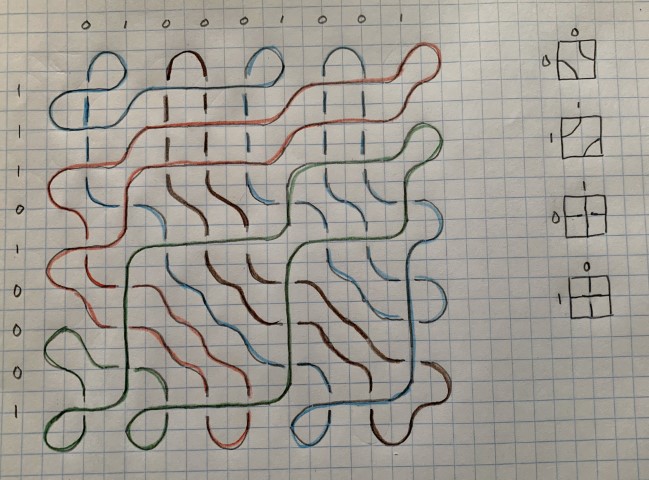 0 1 0 0 0 1 0 0 1
1
1
1
0
1
0
0
0
1
0
0
1
1
1
0
0
1